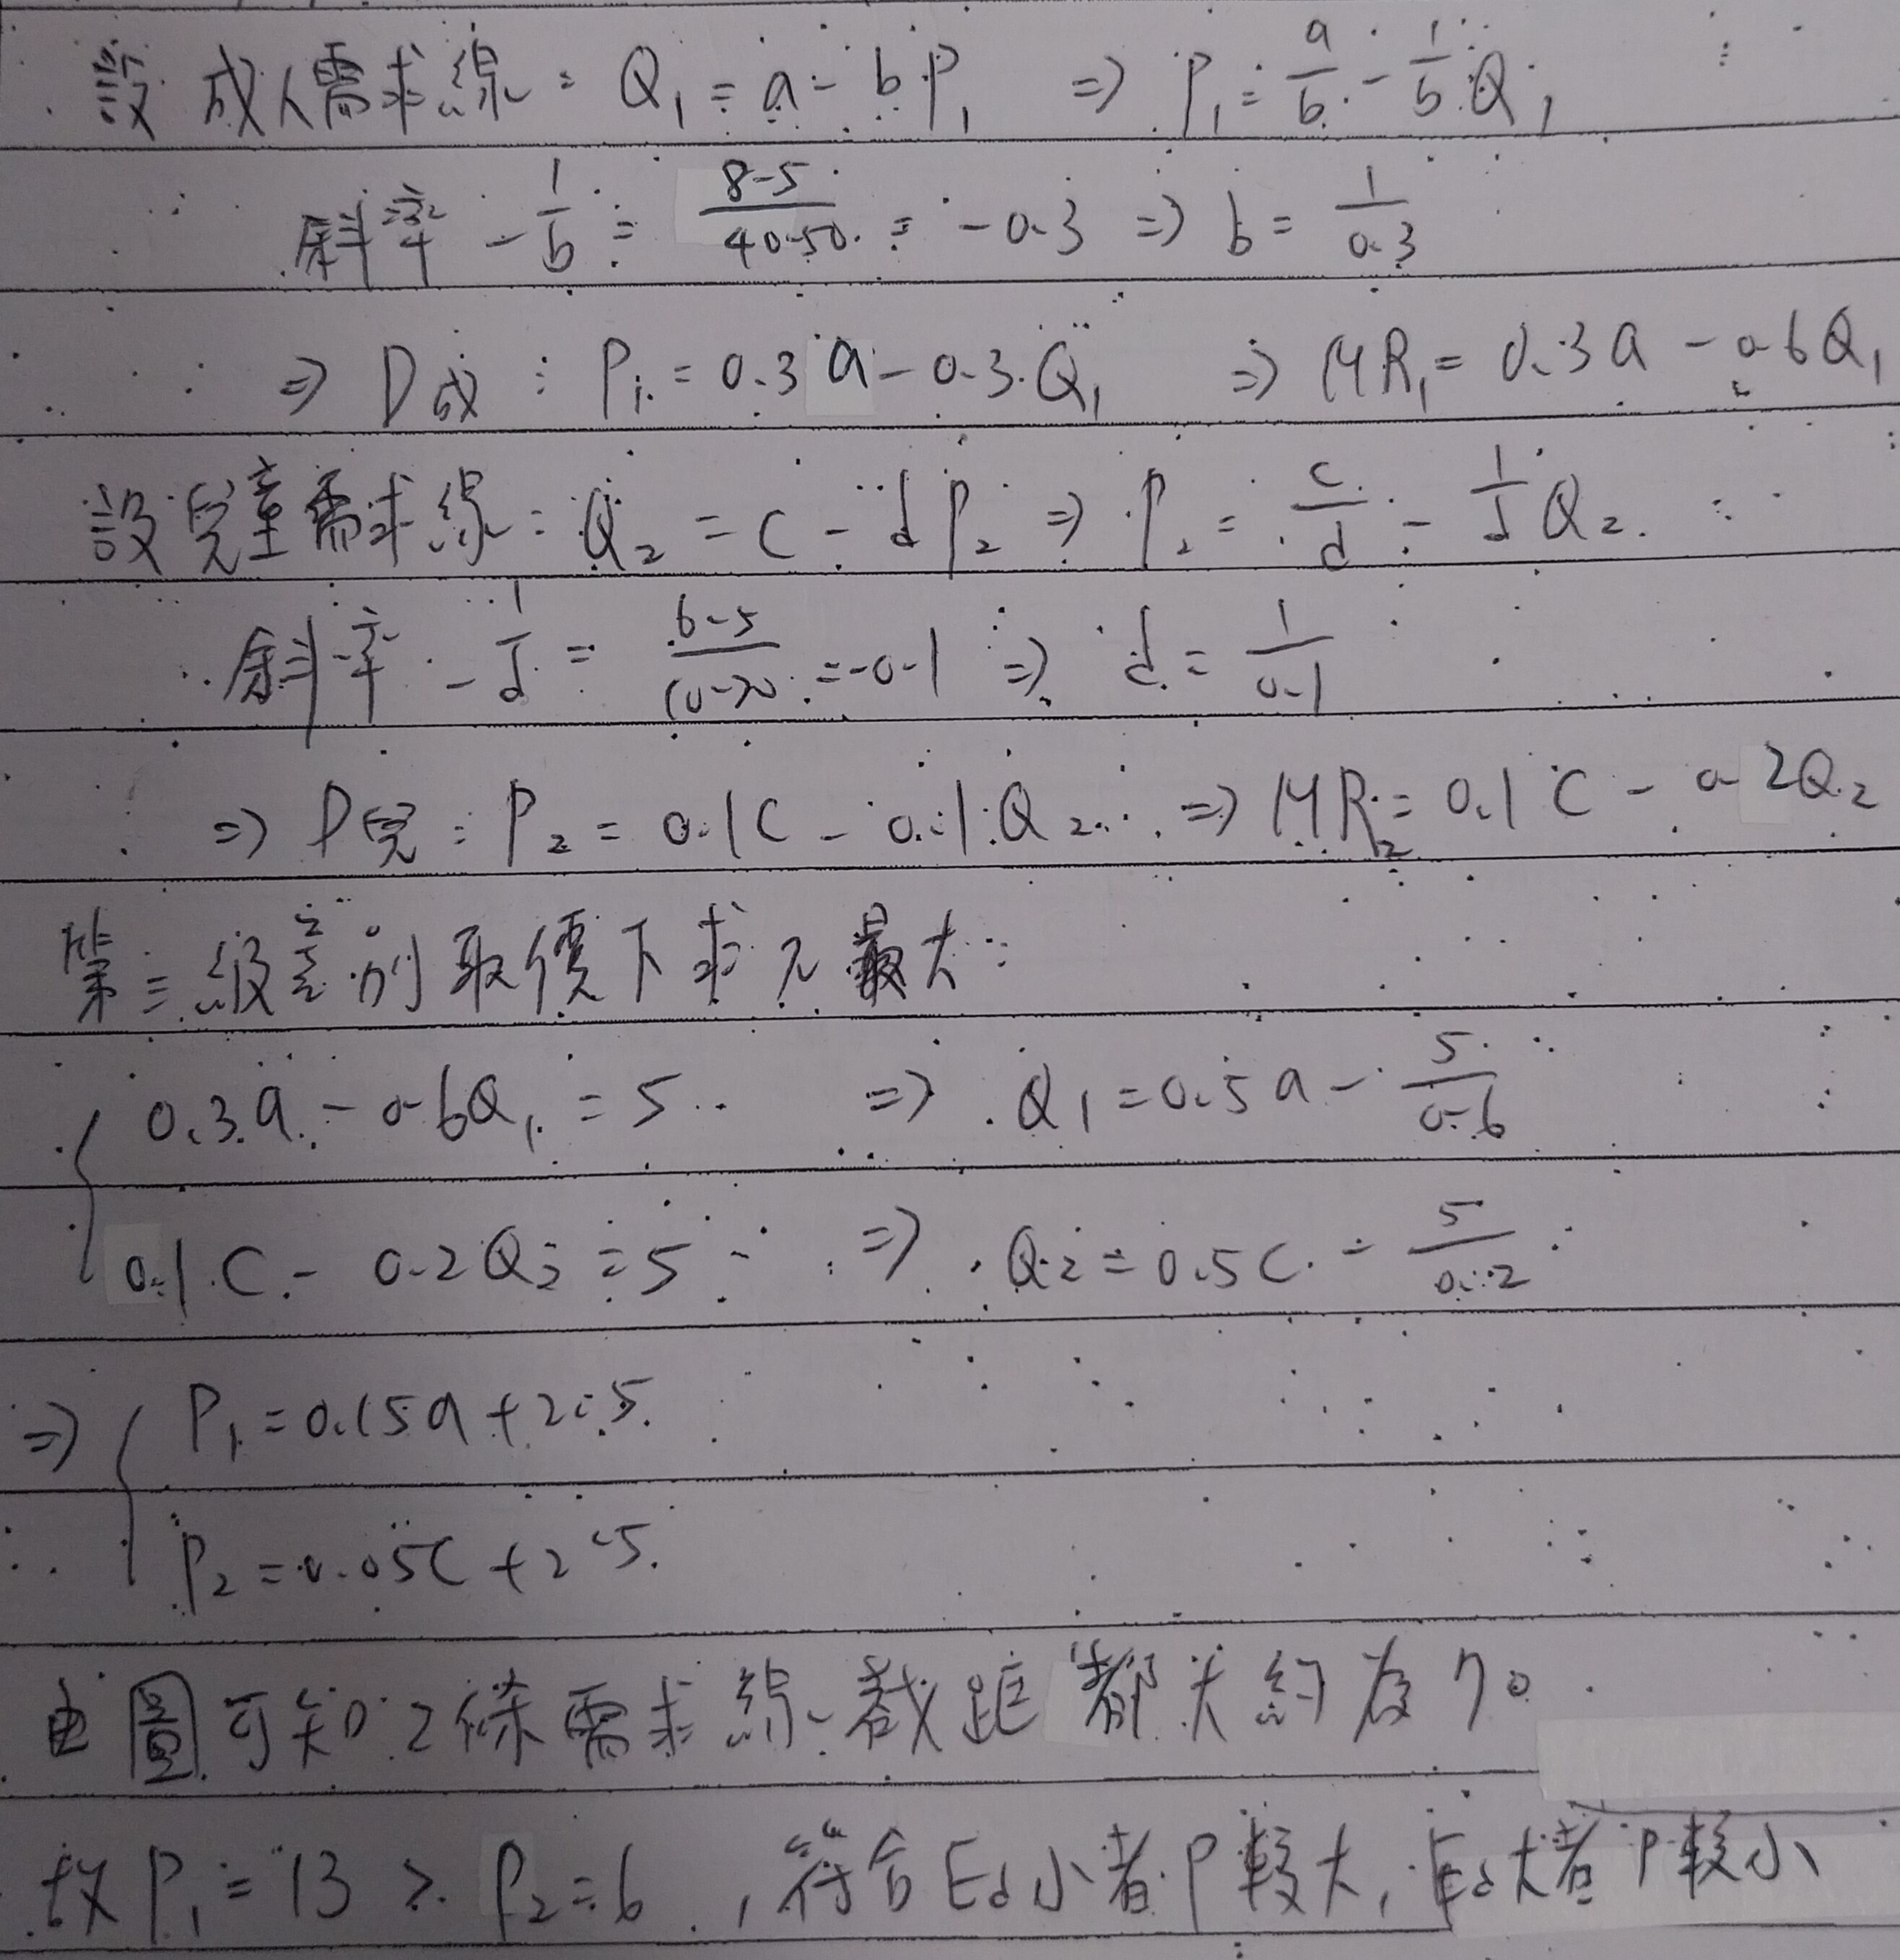 設成人需求線：Q₁ = a - bP₁ ⇒ P₁ = a/b - 1/b Q₁
斜率 -1/b = (8-5)/(40-50) = -0.3 ⇒ b = 1/0.3
⇒ D成：P₁ = 0.3a - 0.3Q₁ ⇒ MR₁ = 0.3a - 0.6Q₁
設兒童需求線：Q₂ = c - dP₂ ⇒ P₂ = c/d - 1/d Q₂
斜率 -1/d = (6-5)/(10-20) = -0.1 ⇒ d = 1/0.1
⇒ D兒：P₂ = 0.1C - 0.1Q₂ ⇒ MR₂ = 0.1C - 0.2Q₂
第三級差別取價下求π最大：
{ 0.3a - 0.6Q₁ = 5 ⇒ Q₁ = 0.5a - 5/0.6
0.1C - 0.2Q₂ = 5 ⇒ Q₂ = 0.5C - 5/0.2
⇒ { P₁ = 0.15a + 2.5
P₂ = 0.05C + 2.5
由圖可知2條需求線截距都大約為70
故P₁ = 13 > P₂ = 6，符合Ed小者P較大，Ed大者P較小